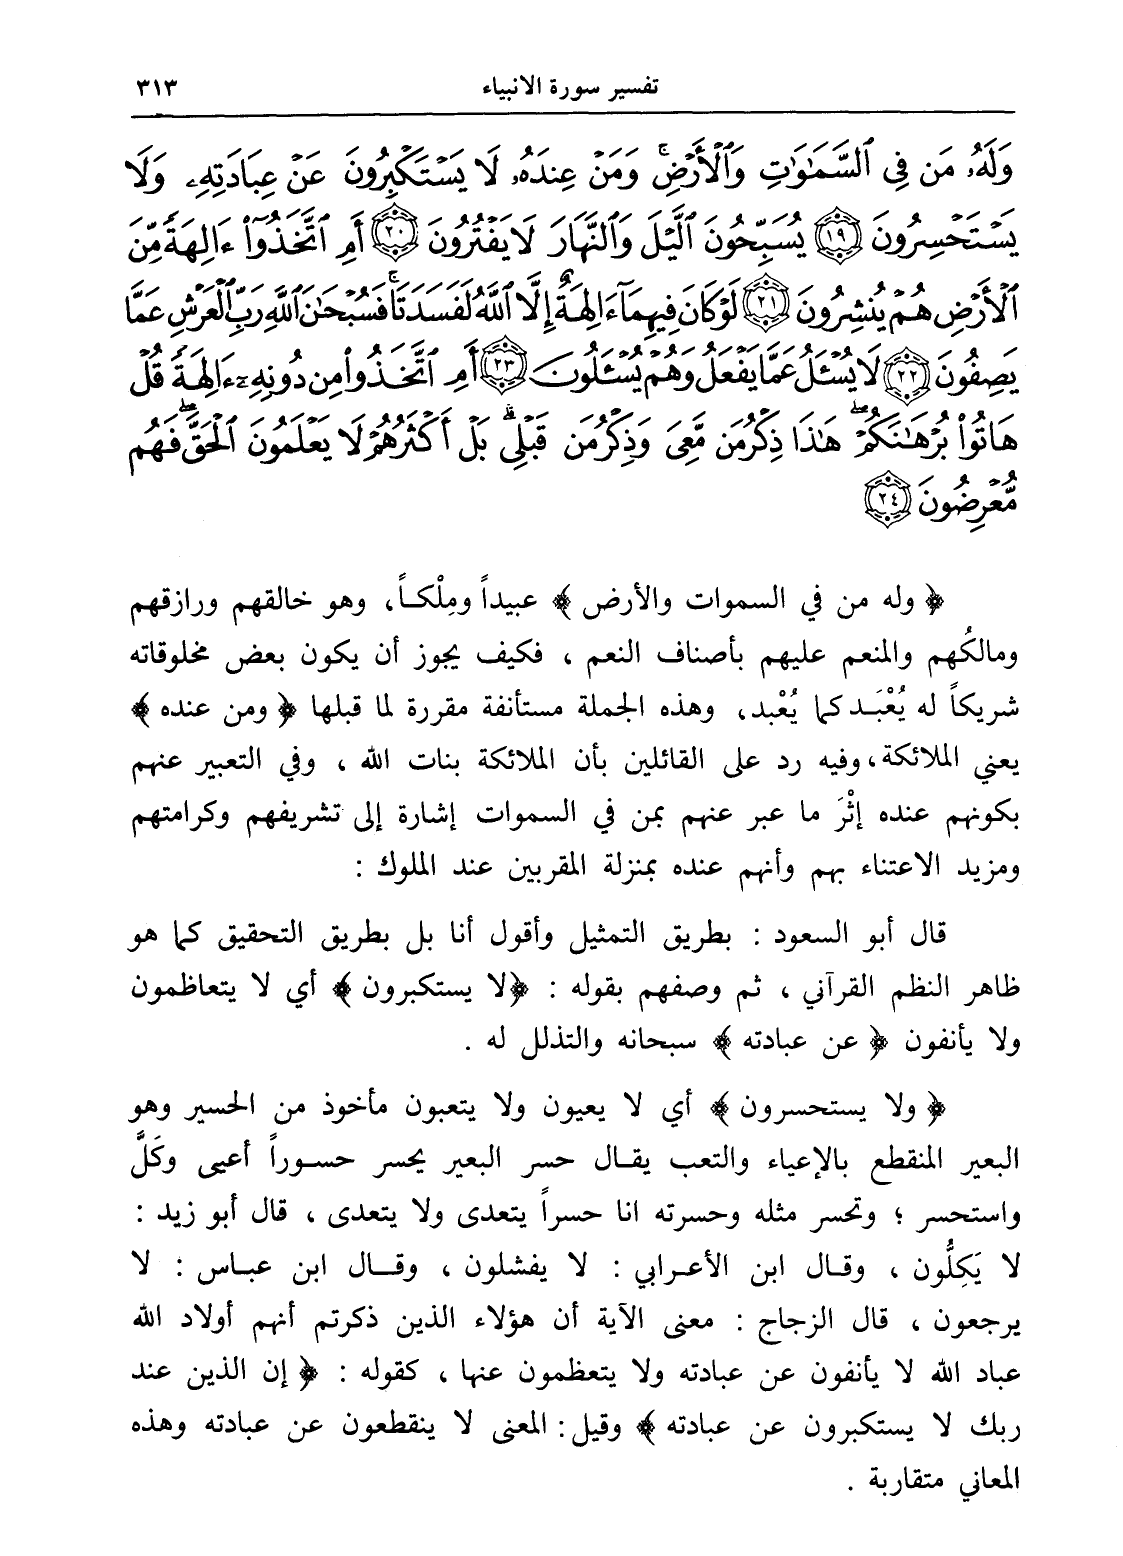 تفسير سورة الانبياء ٣١٣
وَلَهُۥ مَن فِي ٱلسَّمَٰوَٰتِ وَٱلْأَرْضِۚ وَمَنْ عِندَهُۥ لَا يَسْتَكْبِرُونَ عَنْ عِبَادَتِهِۦ وَلَا
يَسْتَحْسِرُونَ ١٩ يُسَبِّحُونَ ٱلَّيْلَ وَٱلنَّهَارَ لَا يَفْتُرُونَ ٢٠ أَمِ ٱتَّخَذُوٓا۟ ءَالِهَةً مِّنَ
ٱلْأَرْضِ هُمْ يُنشِرُونَ ٢١ لَوْ كَانَ فِيهِمَآ ءَالِهَةٌ إِلَّا ٱللَّهُ لَفَسَدَتَاۚ فَسُبْحَٰنَ ٱللَّهِ رَبِّ ٱلْعَرْشِ عَمَّا
يَصِفُونَ ٢٢ لَا يُسْـَٔلُ عَمَّا يَفْعَلُ وَهُمْ يُسْـَٔلُونَ ٢٣ أَمِ ٱتَّخَذُوا۟ مِن دُونِهِۦٓ ءَالِهَةً ۖ قُلْ
هَاتُوا۟ بُرْهَٰنَكُمْ ۖ هَٰذَا ذِكْرُ مَن مَّعِىَ وَذِكْرُ مَن قَبْلِي ۗ بَلْ أَكْثَرُهُمْ لَا يَعْلَمُونَ ٱلْحَقَّ ۖ فَهُم
مُّعْرِضُونَ ٢٤
﴿ وله من في السموات والأرض ﴾ عبيداً ومِلْكاً، وهو خالقهم ورازقهم
ومالكُهم والمنعم عليهم بأصناف النعم ، فكيف يجوز أن يكون بعض مخلوقاته
شريكاً له يُعْبَد كما يُعْبد، وهذه الجملة مستأنفة مقررة لما قبلها ﴿ ومن عنده ﴾
يعني الملائكة، وفيه رد على القائلين بأن الملائكة بنات الله ، وفي التعبير عنهم
بكونهم عنده إثْرَ ما عبر عنهم بمن في السموات إشارة إلى تشريفهم وكرامتهم
ومزيد الاعتناء بهم وأنهم عنده بمنزلة المقربين عند الملوك :
قال أبو السعود : بطريق التمثيل وأقول أنا بل بطريق التحقيق كما هو
ظاهر النظم القرآني ، ثم وصفهم بقوله : ﴿لا يستكبرون ﴾ أي لا يتعاظمون
ولا يأنفون ﴿ عن عبادته ﴾ سبحانه والتذلل له .
﴿ ولا يستحسرون ﴾ أي لا يعيون ولا يتعبون مأخوذ من الحسير وهو
البعير المنقطع بالإعياء والتعب يقال حسر البعير يحسر حسوراً أعيى وكَلَّ
واستحسر ؛ وتحسر مثله وحسرته انا حسراً يتعدى ولا يتعدى ، قال أبو زيد :
لا يَكِلُّون ، وقال ابن الأعرابي : لا يفشلون ، وقال ابن عباس : لا
يرجعون ، قال الزجاج : معنى الآية أن هؤلاء الذين ذكرتم أنهم أولاد الله
عباد الله لا يأنفون عن عبادته ولا يتعظمون عنها ، كقوله : ﴿ إن الذين عند
ربك لا يستكبرون عن عبادته ﴾ وقيل : المعنى لا ينقطعون عن عبادته وهذه
المعاني متقاربة .